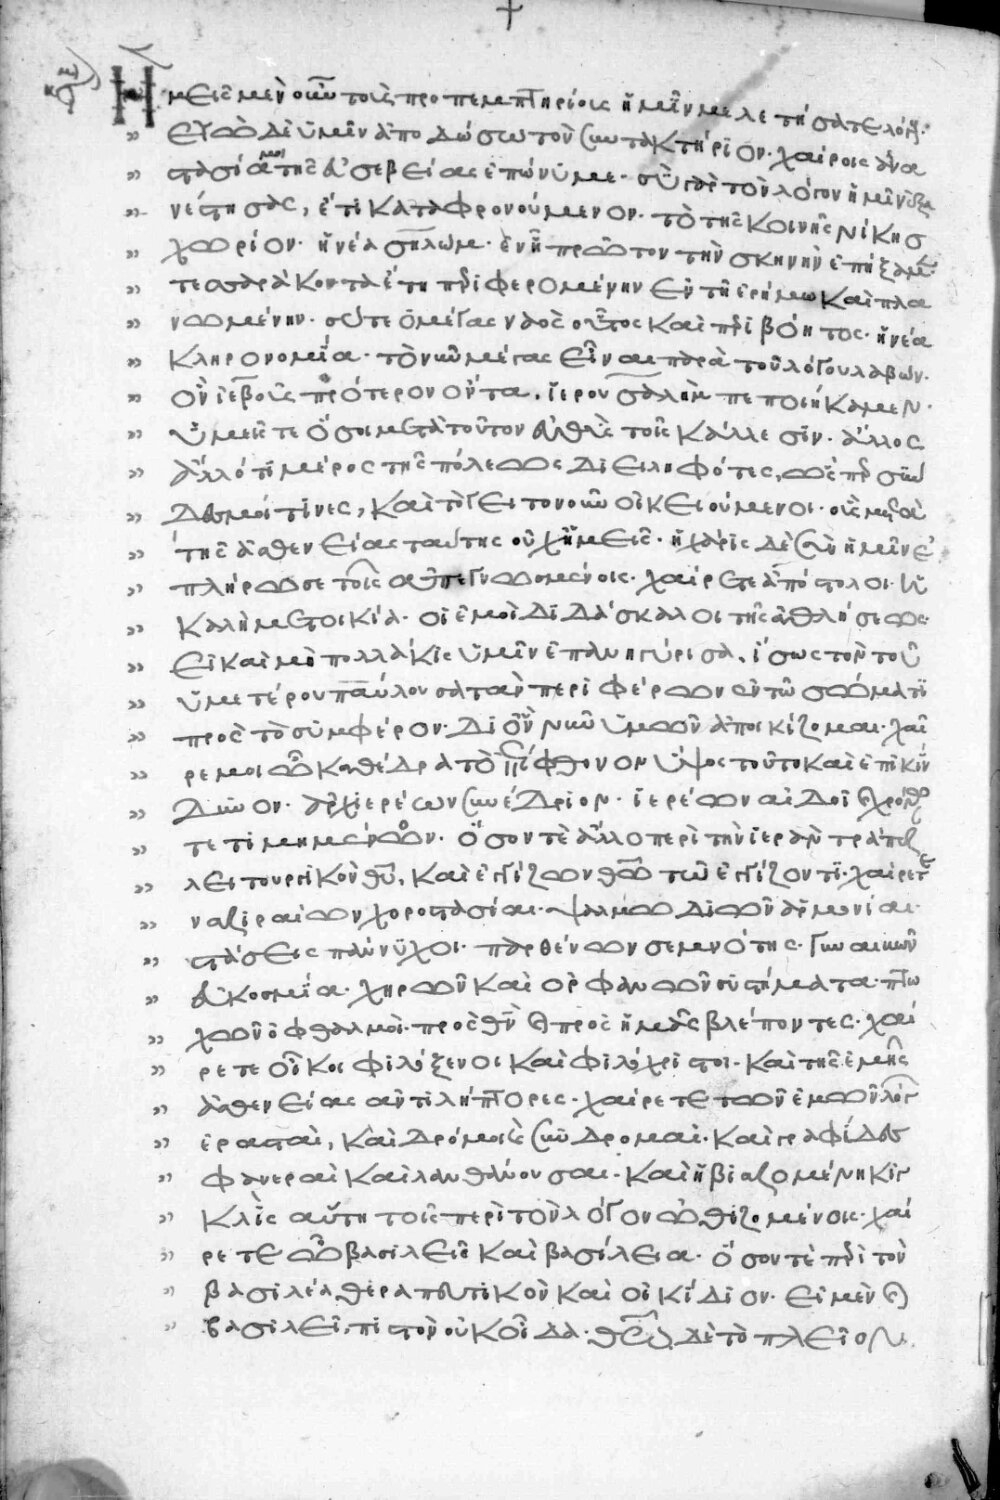 Ἡμεῖς μὲν οὖν τοῖς προπεμπτηρίοις ἡμῖν μελετήσατε λόγοις·
ἐγὼ δὲ ὑμῖν ἀποδώσω τὸν συντακτήριον· χαίροις ἀνα
στασία μοι τῆς εὐσεβείας ἐπώνυμε· σὺ γὰρ τὸν λόγον ἡμῖν ἐξα
νέστησας, ἔτι καταφρονούμενον· τὸ τῆς κοινῆς νίκης
χωρίον· ἡ νέα σηλώμ· ἐν ᾗ πρῶτον τὴν σκηνὴν ἐπήξαμεν
τεσσαράκοντα ἔτη περιφερομένην ἐν τῇ ἐρήμω καὶ πλα
νωμένην· σύ τε ὁ μέγας ναὸς οὗτος καὶ περιβόητος· ἡ νέα
κληρονομία· τὸ νῦν μέγας εἶναι παρὰ τοῦ λόγου λαβών·
ὃν ἰεβοῦς πρότερον ὄντα, ἱερουσαλὴμ πεποιήκαμεν·
ὑμεῖς τε ὅσοι μετὰ τοῦτον εὐθὺς τοῖς κάλλεσιν· ἄλλος
ἄλλό τι μέρος τῆς πόλεως διειληφότες, ὡσπερ σύν
δεσμοί τινες, καὶ τὸ γειτονοῦν οἰκειούμενοι· οὓς μετὰ
τῆς ἀσθενείας ταύτης οὐχ ἡμεῖς· ἡ χάρις δὲ σὺν ἡμῖν ἐ
πλήρωσε τοῖς ἀπεγνωσμένοις· χαίρετε ἀπόστολοι· ἡ
καλὴ μετοικία· οἱ ἐμοὶ διδάσκαλοι τῆς ἀθλήσεως·
εἰ καὶ μὴ πολλάκις ὑμῖν ἐπανηγύρισα, ἴσως τὸν τοῦ
ὑμετέρου παύλου σατᾶν περιφέρων ἐν τῶ σώματι
πρὸς τὸ συμφέρον· δι' ὃν νῦν ὑμῶν ἀποικίζομαι· χαῖ
ρέ μοι ὦ καθέδρα τὸ ἐπίφθονον ὕψος τοῦτο καὶ ἐπικίν
δυνον· ἀρχιερέων συνέδριον· ἱερέων αἰδοῖ καὶ χρόνω
τετιμημένων· ὅσον τὲ ἄλλο περὶ τὴν ἱερὰν τράπεζαν
λειτουργικὸν θεοῦ, καὶ ἐγγίζων θεῶ τῶ ἐγγίζοντι· χαίρετε
ναζιραίων χοροστασίαι· ψαλμωδιῶν ἁρμονίαι·
στάσεις πάννυχοι· παρθένων σεμνότης· γυναικῶν
εὐκοσμία· χηρῶν καὶ ὀρφανῶν συστήματα· πτω
χῶν ὀφθαλμοὶ πρὸς θεὸν καὶ πρὸς ἡμᾶς βλέποντες· χαί
ρετε οἶκοι φιλόξενοι καὶ φιλόχριστοι· καὶ τῆς ἐμῆς
ἀσθενείας ἀντιλήπτορες· χαίρετε τῶν ἐμῶν λόγων
ἐρασταὶ, καὶ δρόμοι καὶ συνδρομαὶ· καὶ γραφίδες
φανεραὶ καὶ λανθάνουσαι· καὶ ἡ βιαζομένη κιγ
κλὶς αὕτη τοῖς περὶ τὸν λόγον ὠθιζομένοις· χαί
ρετε ὦ βασιλεῖς καὶ βασίλεια· ὅσον τὲ περὶ τὸν
βασιλέα θεραπευτικὸν καὶ οἰκίδιον· εἰ μὲν καὶ
βασιλεῖ, πιστὸν οὐκ οἶδα· θεῶ δὲ τὸ πλεῖον